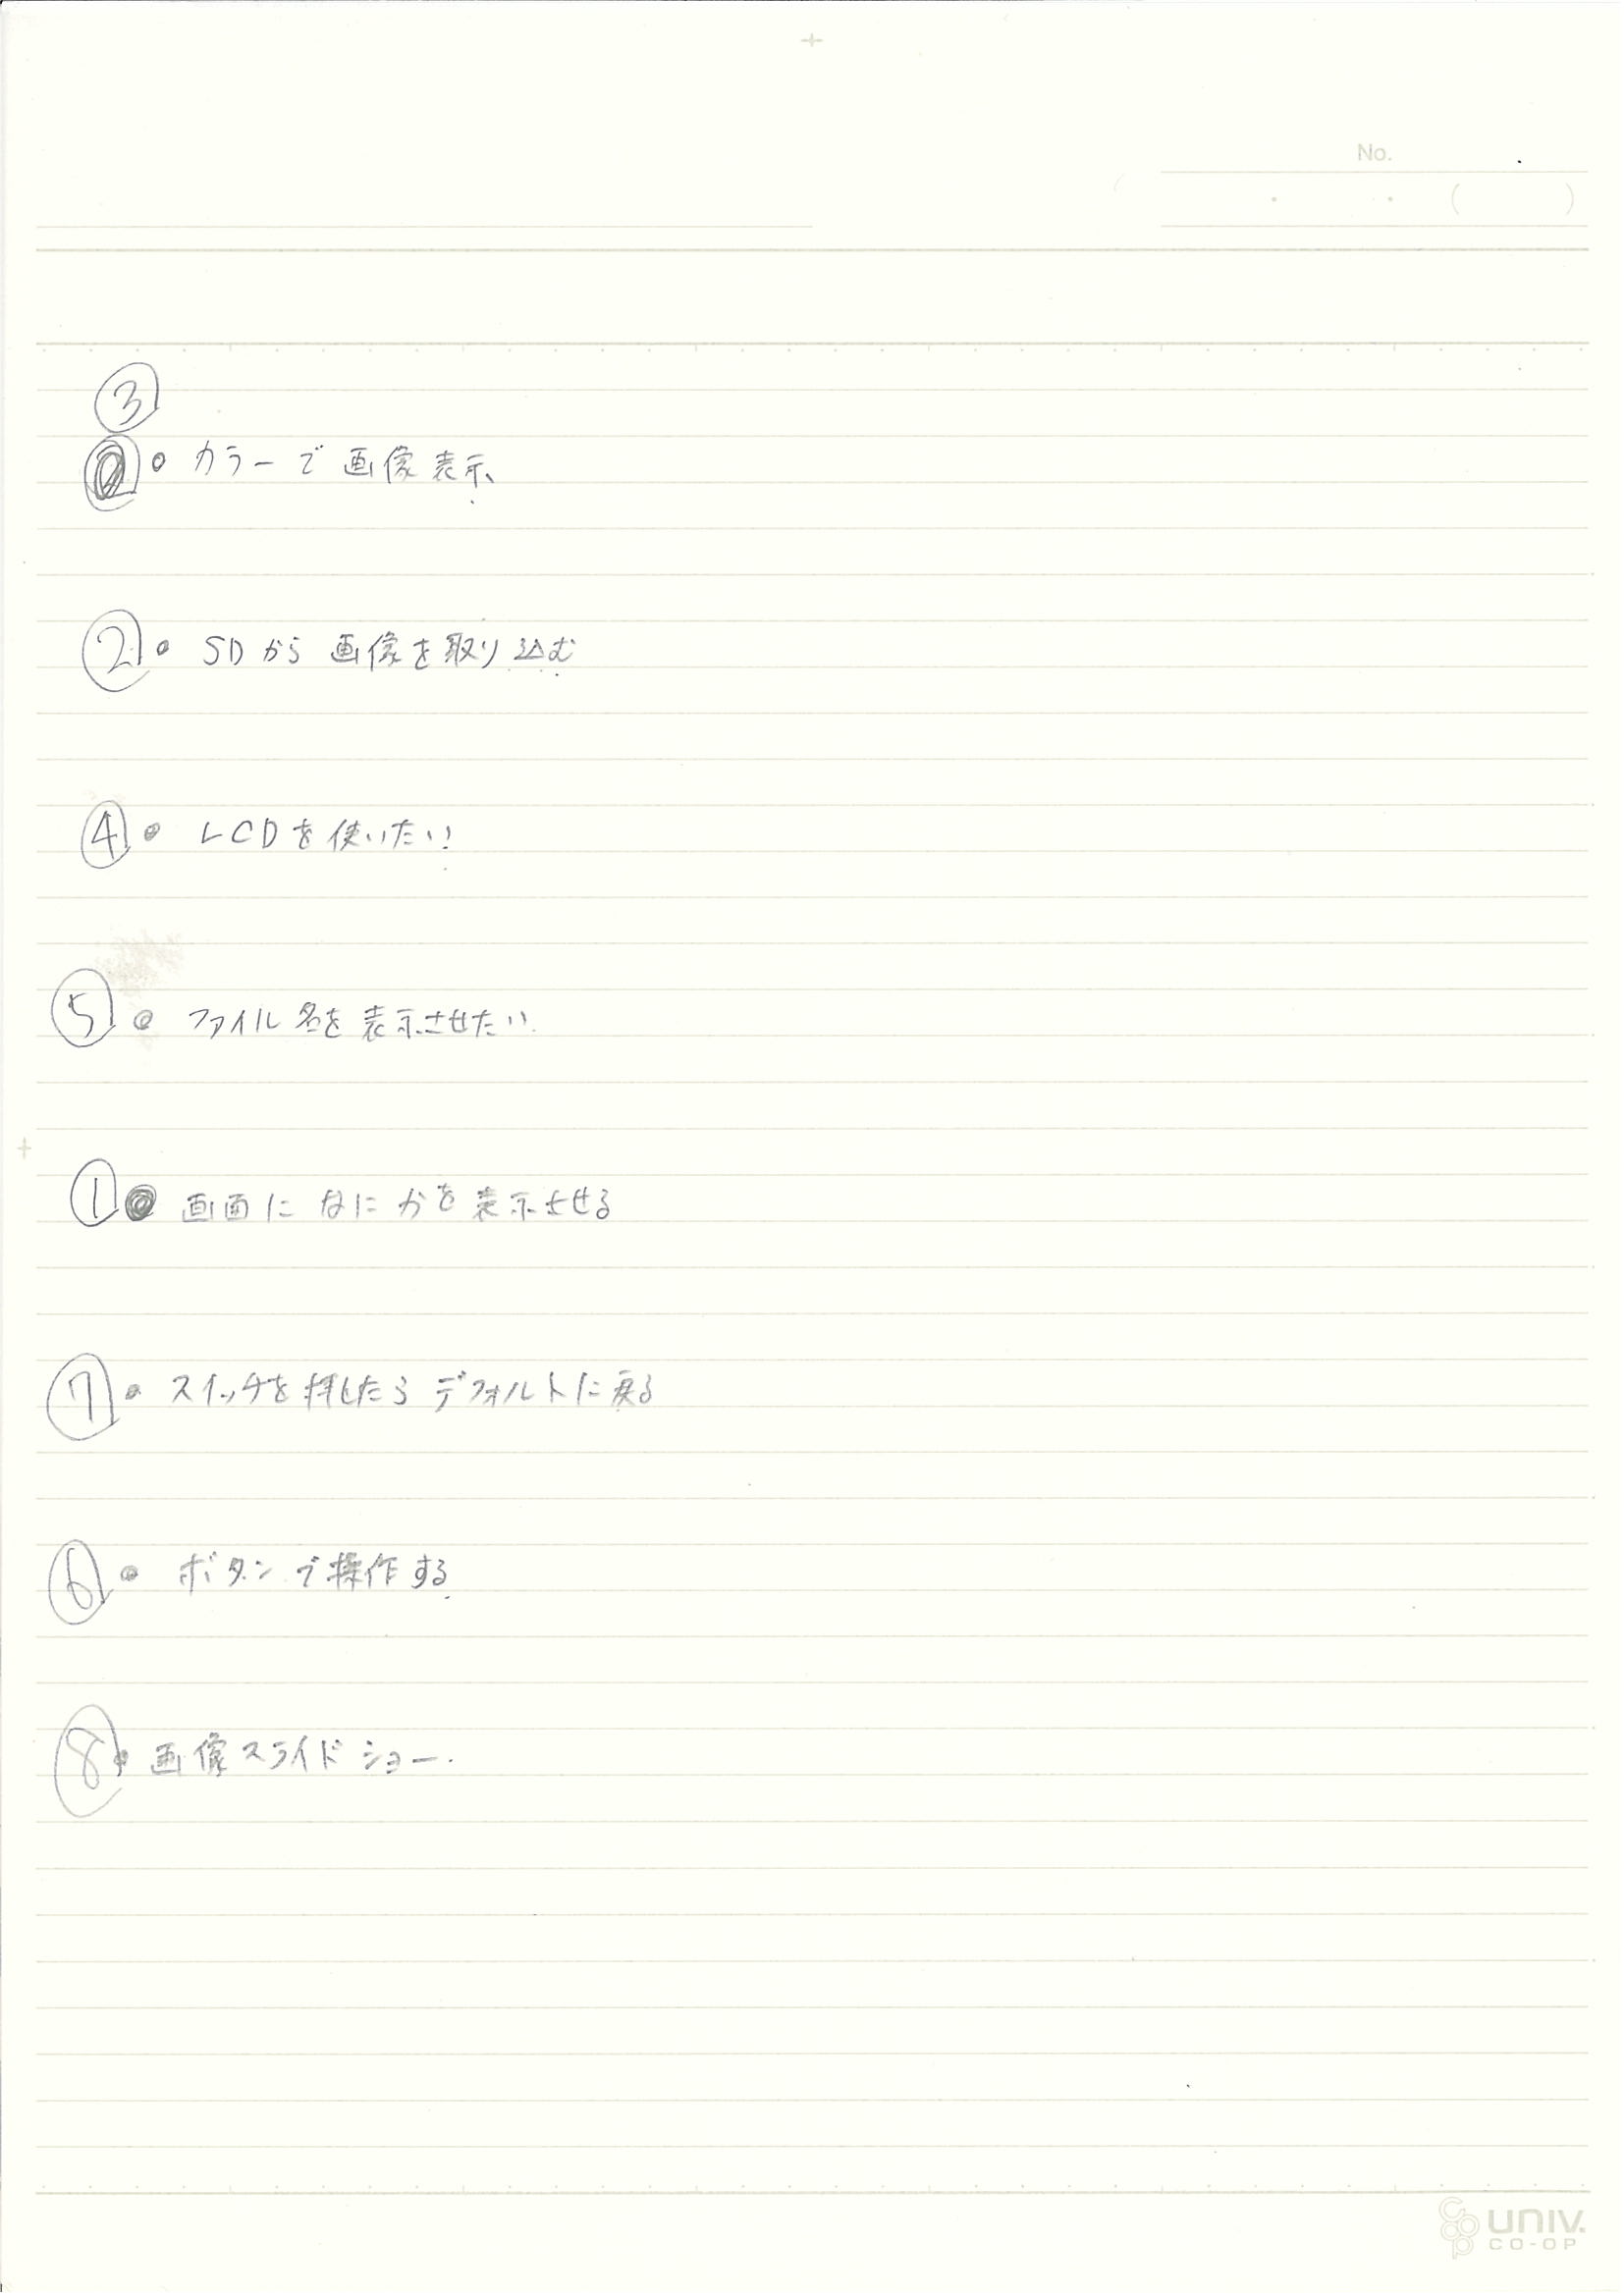 No.
( )
③
② ・ カラーで画像表示
② ・ SDから画像を取り込む
④ ・ LCDを使いたい!
⑤ ・ ファイル名を表示させたい
① ・ 画面になにかを表示させる
⑦ ・ スイッチを押したらデフォルトに戻る
⑥ ・ ボタンで操作する
⑧ ・ 画像スライドショー.
UNIV.
CO-OP